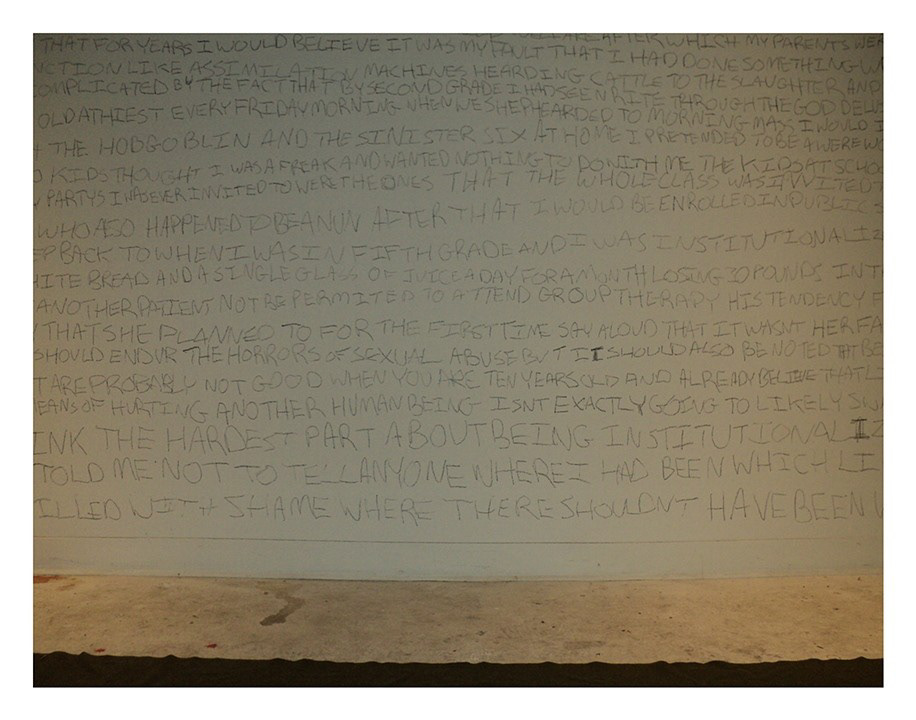 THAT FOR YEARS I WOULD BELIEVE IT WAS MY FAULT THAT I HAD DONE SOMETHING AFTER WHICH MY PARENTS
LIKE ASSIMILATION MACHINES HEARDING CATTLE TO THE SLAUGHTER AND
BY THE FACT THAT BY SECOND GRADE I HAD SEEN RITE THROUGH THE GOD
OLD ATHIEST EVERY FRIDAY MORNING WHEN WE SHEPHEARDED TO MORNING MASS I WOULD
THE HOBGOBLIN AND THE SINISTER SIX AT HOME I PRETENDED TO BE A WERE
KIDS THOUGHT I WAS A FREAK AND WANTED NOTHING TO DO WITH ME THE KIDS AT
PARTYS I WAS EVER INVITED TO WERE THE ONES THAT THE WHOLE CLASS WAS INVITED
WHO ALSO HAPPENED TO BE A NUN AFTER THAT I WOULD BE ENROLLED IN PUBLIC
BACK TO WHEN I WAS IN FIFTH GRADE AND I WAS INSTITUTIONALIZ
BREAD AND A SINGLE GLASS OF JUICE A DAY FOR A MONTH LOSING 30 POUNDS IN
ANOTHER PATIENT NOT BE PERMITED TO ATTEND GROUP THERAPY HIS TENDENCY
THAT SHE PLANNED TO FOR THE FIRST TIME SAY ALOUD THAT IT WASNT HER FA
SHOULD ENDUR THE HORRORS OF SEXUAL ABUSE BUT II SHOULD ALSO BE NOTED THAT BE
ARE PROBABLY NOT GOOD WHEN YOU ARE TEN YEARS OLD AND ALREADY BELIEVE THAT LI
EANS OF HURTING ANOTHER HUMAN BEING ISNT EXACTLY GOING TO LIKELY
INK THE HARDEST PART ABOUT BEING INSTITUTIONALIZ
TOLD ME NOT TO TELL ANYONE WHERE I HAD BEEN WHICH LI
ILLED WITH SHAME WHERE THERE SHOULDNT HAVE BEEN